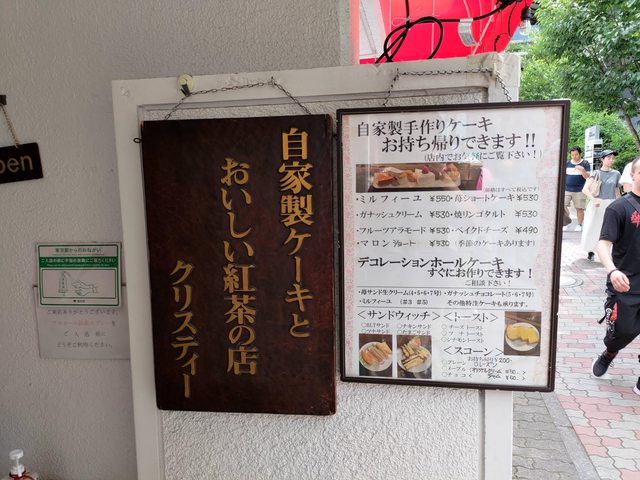 pen
東京都からのおねがい
ご来店ありがとうございます。
どうぞご利用ください。
自家製ケーキと
おいしい紅茶の店
クリスティー
自家製手作りケーキ
お持ち帰りできます!!
(価格はすべて税込です)
・ミルフィーユ ¥550 ・苺ショートケーキ ¥530
・ガナッシュクリーム ¥530 ・焼リンゴタルト ¥530
・フルーツアラモード ¥530 ・ベイクドチーズ ¥490
・マロンショート ¥530 (季節のケーキあります)
デコレーションホールケーキ
すぐにお作りできます!
ご相談下さい!
・苺サンド生クリーム(4・5・6・7号) ・ガナッシュチョコレート(5・6・7号)
・ミルフィーユ その他特注ケーキも承ります。
<サンドウィッチ>
○BLTサンド ○チキンサンド
○ツナサンド ○たまごサンド
<トースト>
○チーズトースト
○ツナトースト
○シナモントースト
<スコーン>
お持ち帰り¥200~
○プレーン ○レーズン
○メープル
○チョコ